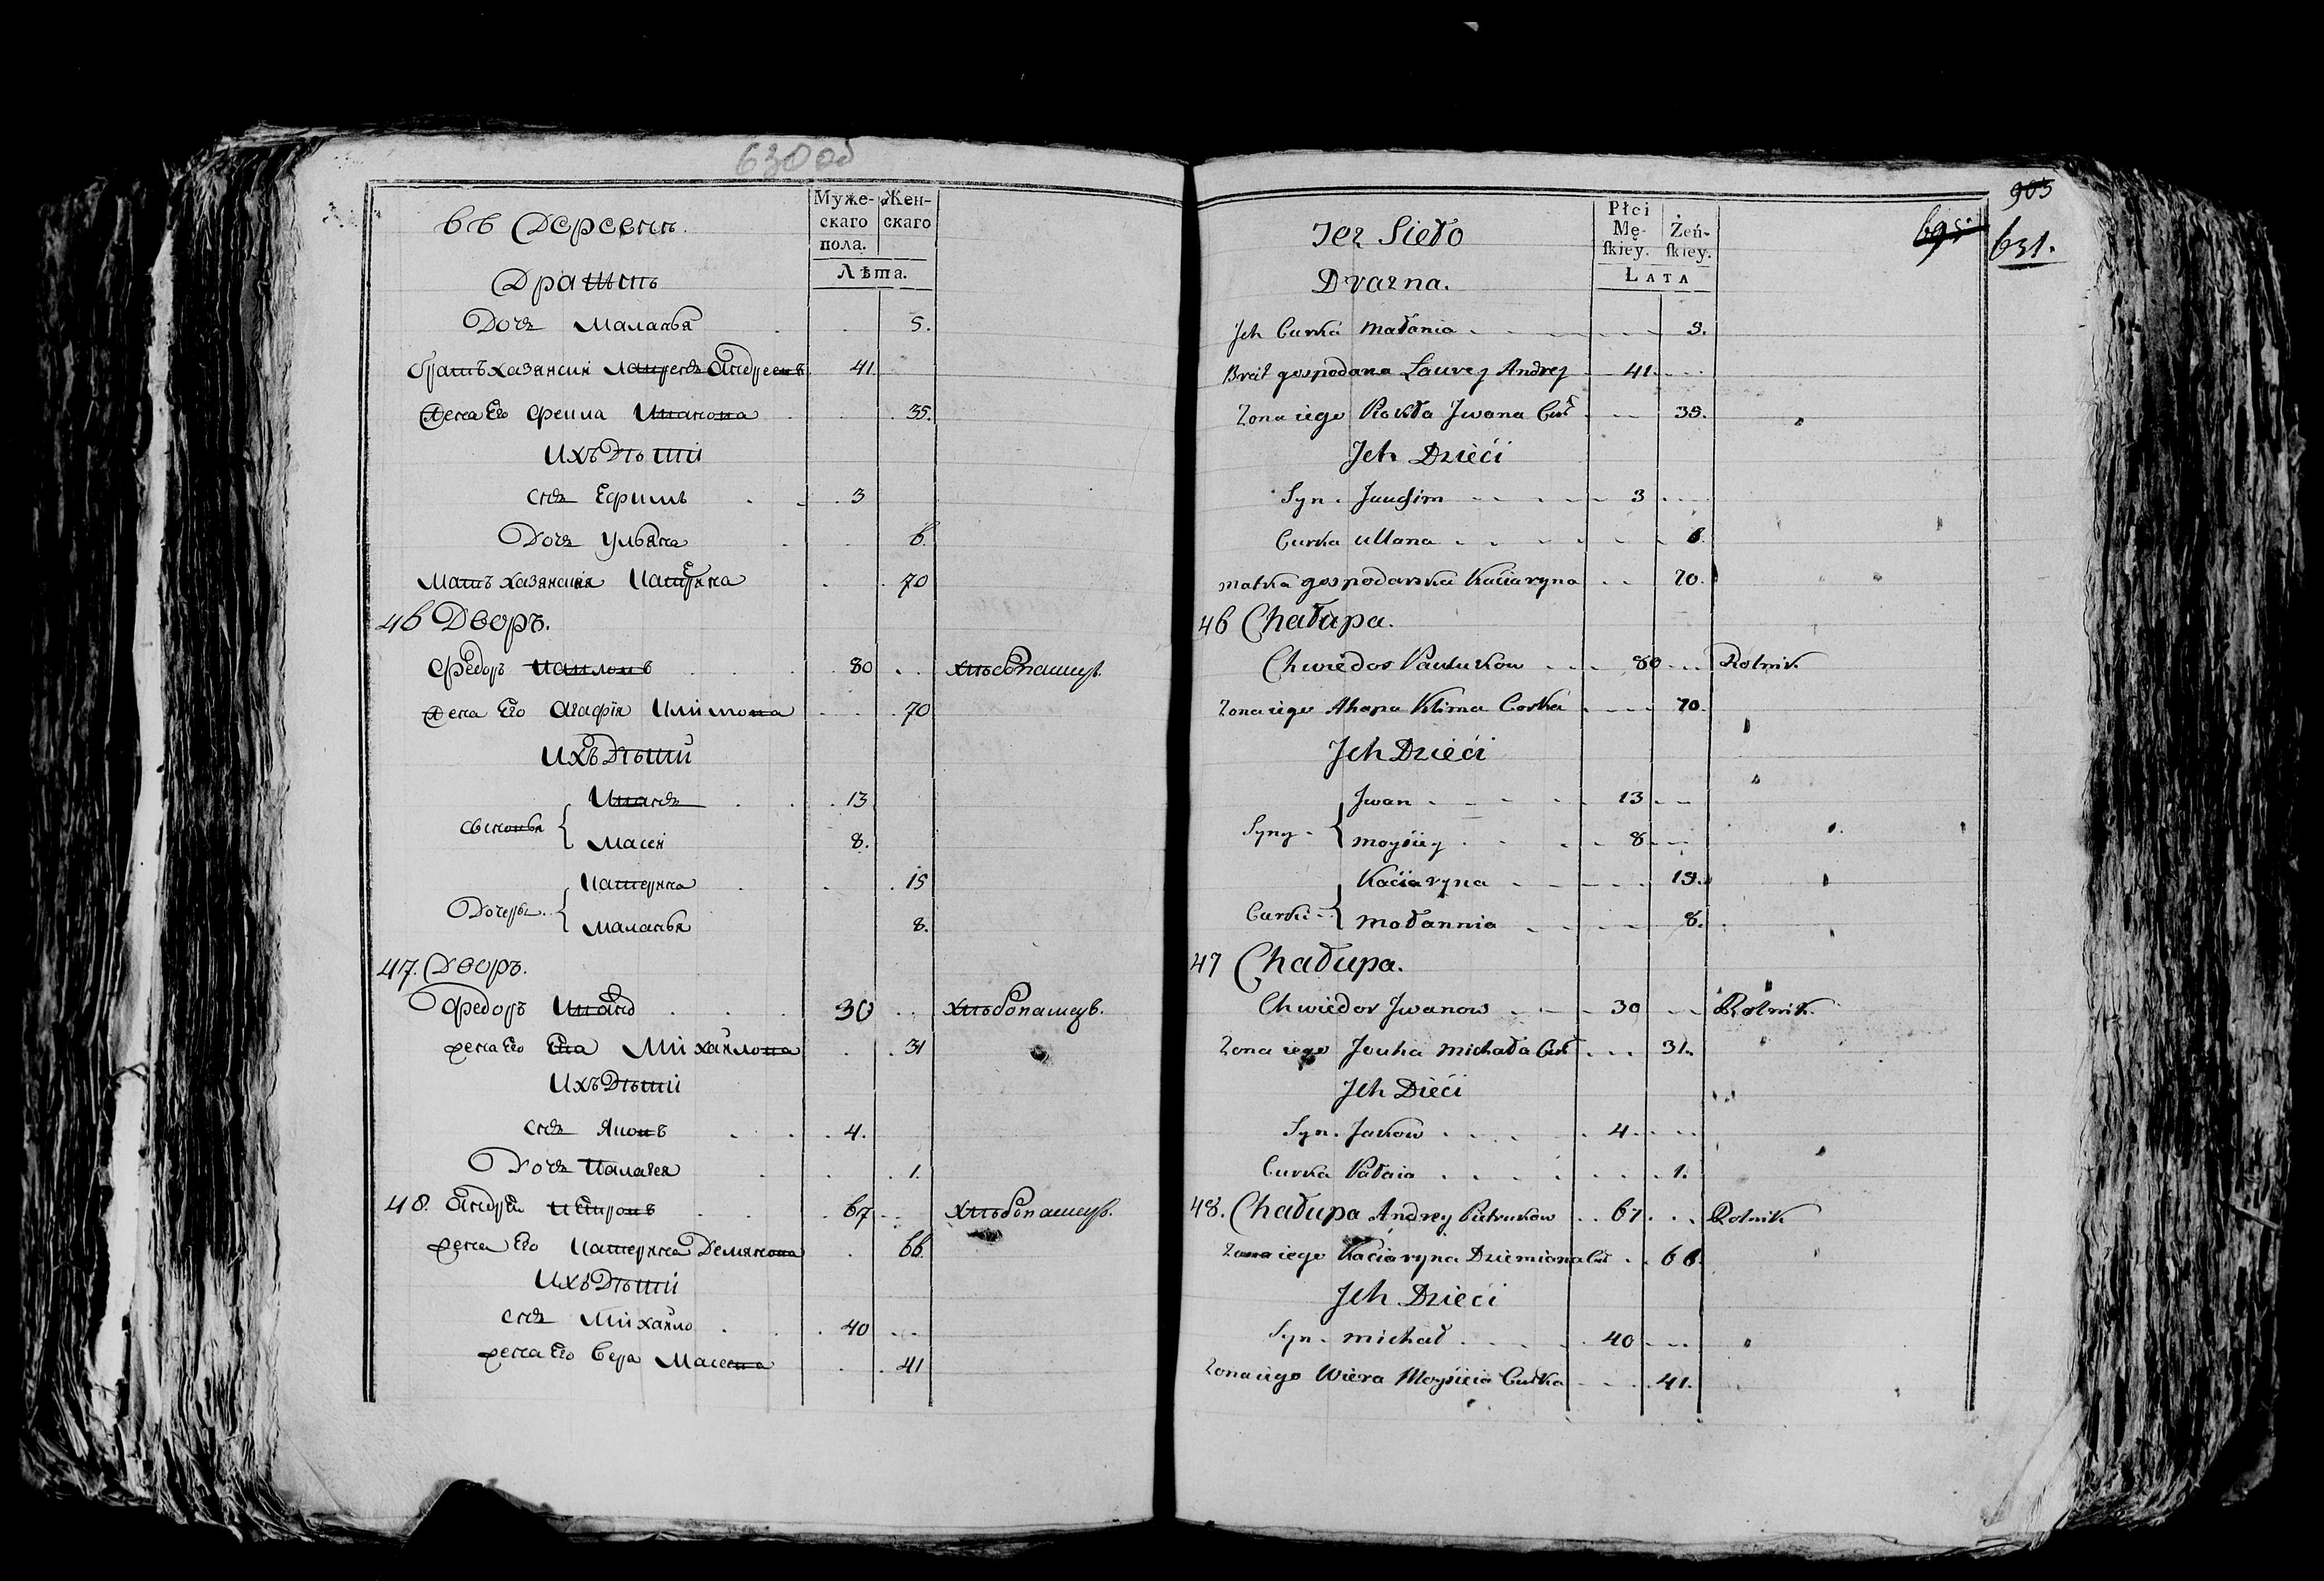 630 об
Муже-
скаго
пола.
Жен-
скаго
Лѣта.
въ Деревни
Дочь Маланья 5.
братъ хазянскій Андреевъ 41
жена Его 35.
Ихъ Дѣти
снъ Ефимъ 3
Дочь Ульяна 6.
Мать хазянския Катерина 70
46 Дворъ.
Федоръ 80 хлѣбопашецъ.
жена Его Агафія Климова 70
Ихъ Дѣтии
сыновья { Иванъ 13
Масей 8.
Дочеръи { Катерина 15
Маланья 8.
47. Дворъ.
Федоръ Иванов 30 хлѣбопашецъ.
жена Его Ева Михайлова 31
Ихъ Дѣтии
снъ Яковъ 4.
Дочь Палагея 1.
48. Андрей Петровъ 67 хлѣбопашецъ.
жена Его Катерина Демянова 66
Ихъ Дѣтии
снъ Михайло 40
жена Его Вера Масеева 41
903
695
631.
Płci
Mę-
skiey.
Żeń-
skiey.
Lata
Jez Sieło
Dvarna.
Jch Curka Małania 5.
Brat gospodara Laurey Andrey 41.
Zona iego Rokła Jwana Cur 35.
Jch Dzieći
Syn. Jauchim 3
Curka Ullana 6
Matka gospodarska Kaciaryna 70.
46 Chałupa.
Chwiedor Paulukow 80 Rolnik
Zona iego Ahapa Klima Corka 70.
Jch Dzieći
Syny { Jwan 13
Moysiey 8
Curki { Kaciaryna 15.
Małannia 8.
47 Chałupa.
Chwiedor Jwanow 30 Rolnik.
Zona iego Jeuha Michała Cur 31.
Jch Dieći
Syn. Jakow 4.
Curka Pałaia 1.
48. Chałupa Andrey Pietrukow 67 Rolnik
Zona iego Kaciaryna Dziemiana Cur 66.
Jch Dzieci
Syn. Michał 40
Zona iego Wiera Moysieia Curka 41.